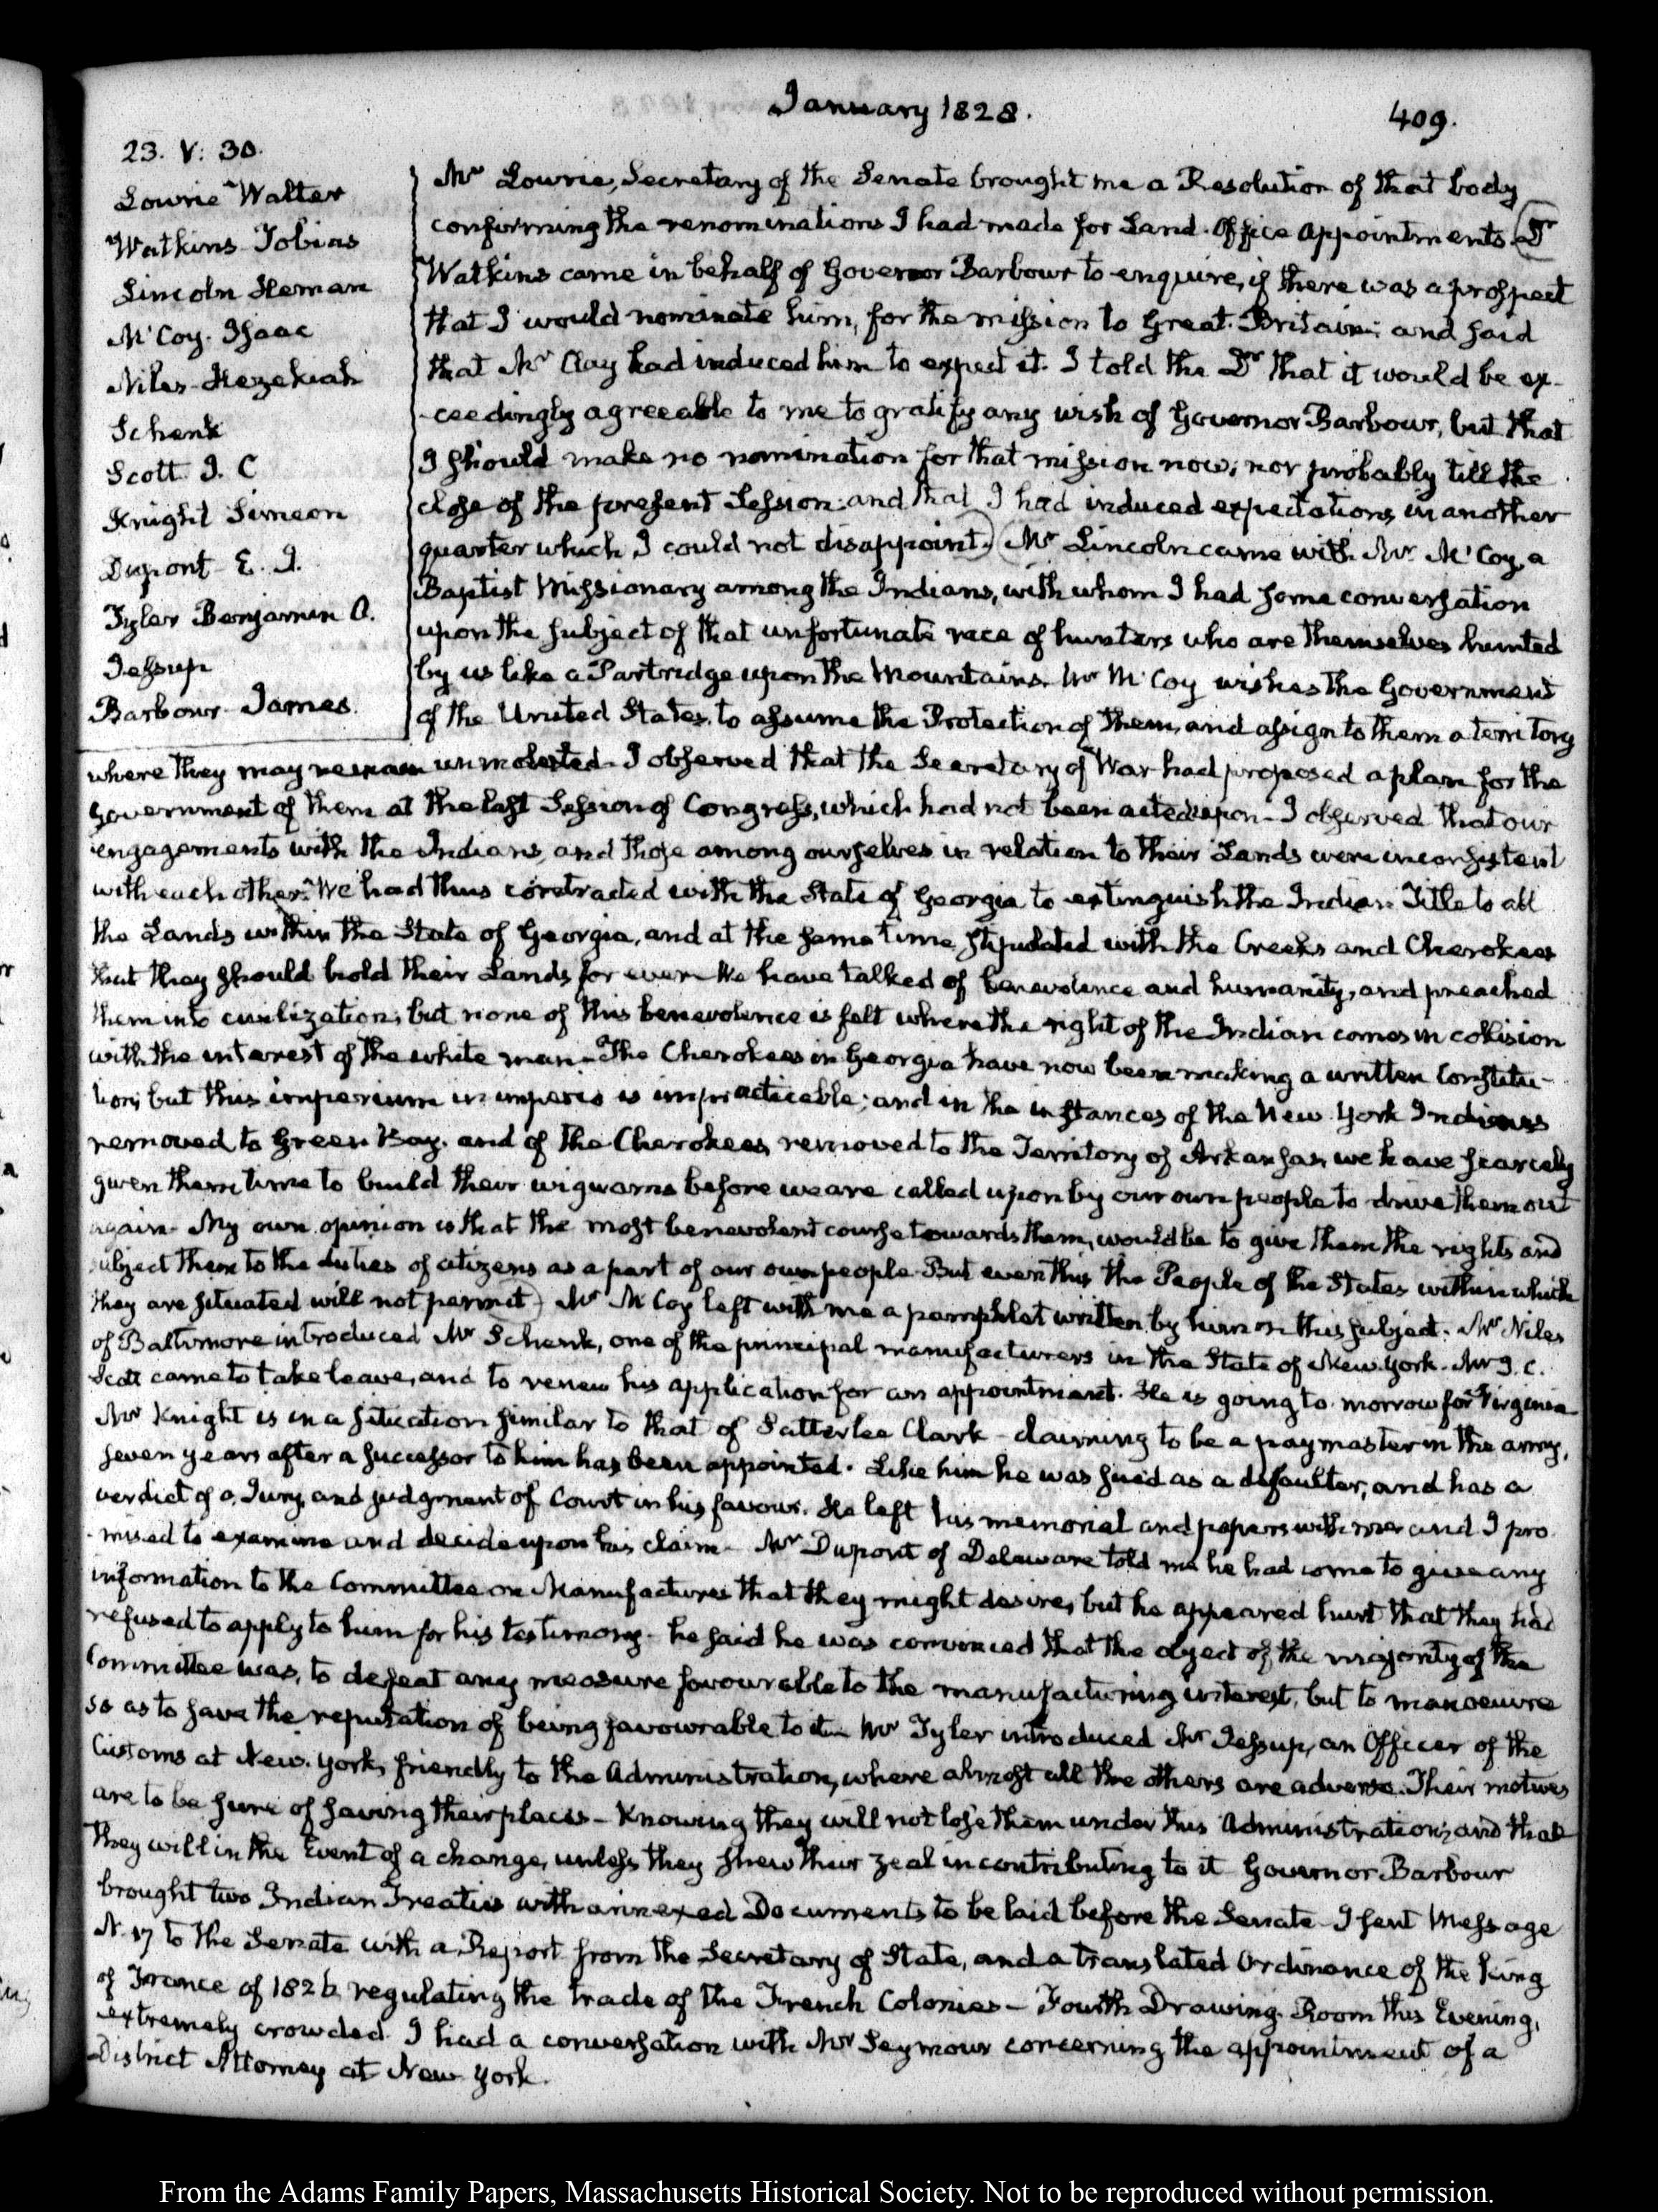 January 1828.
409.
23. V: 30.
Lowrie Walter
Watkins Tobias
Lincoln Heman
McCoy. Isaac
Niles Hezekiah
Schenk
Scott J. C
Knight Simeon
Dupont E. I.
Tyler Benjamin O.
Jessup
Barbour James.
Mr Lowrie, Secretary of the Senate brought me a Resolution of that body
confirming the renominations I had made for Land-Office appointments. Dr
Watkins came in behalf of Governor Barbour to enquire, if there was a prospect
that I would nominate him, for the mission to Great-Britain; and said
that Mr Clay had induced him to expect it. I told the Dr that it would be ex-
-ceedingly agreeable to me to gratify any wish of Governor Barbour, but that
I should make no nomination for that mission now; nor probably till the
close of the present Session: and that I had induced expectations in another
quarter which I could not disappoint. Mr Lincoln came with Mr McCoy, a
Baptist Missionary among the Indians, with whom I had some conversation
upon the subject of that unfortunate race of hunters who are themselves hunted
by us like a Partridge upon the Mountains. Mr McCoy wishes the Government
of the United States, to assume the Protection of them, and assign to them a territory
where they may remain unmolested. I observed that the Secretary of War had proposed a plan for the
Government of them at the last Session of Congress, which had not been acted upon- I observed that our
engagements with the Indians, and those among ourselves in relation to their Lands were inconsistent
with each other. We had thus contracted with the State of Georgia to extinguish the Indian Title to all
the Lands within the State of Georgia, and at the same time stipulated with the Creeks and Cherokees
that they should hold their Lands for ever. We have talked of benevolence and humanity, and preached
them into civilization; but none of this benevolence is felt where the right of the Indian comes in collision
with the interest of the white man- The Cherokees in Georgia have now been making a written Constitu-
tion; but this imperium in imperio is impracticable; and in the instances of the New York Indians
removed to Green Bay, and of the Cherokees removed to the Territory of Arkansas, we have scarcely
given them time to build their wigwams before we are called upon by our own people to drive them out
again- My own opinion is that the most benevolent course towards them, would be to give them the rights and
subject them to the duties of citizens as a part of our own people. But even this the People of the States within which
they are situated will not permit- Mr McCoy left with me a pamphlet written by him on this subject. Mr Niles
of Baltimore introduced Mr Schenk, one of the principal manufacturers in the State of New York. Mr J. C.
Scott came to take leave, and to renew his application for an appointment. He is going to-morrow for Virginia
Mr Knight is in a situation similar to that of Satterlee Clark- claiming to be a paymaster in the army,
seven years after a successor to him has been appointed. Like him he was sued as a defaulter, and has a
verdict of a Jury, and judgment of Court in his favour. He left his memorial and papers with me and I pro-
-mised to examine and decide upon his claim- Mr Dupont of Delaware told me he had come to give any
information to the Committee on Manufactures that they might desire, but he appeared hurt that they had
refused to apply to him for his testimony- he said he was convinced that the object of the majority of the
Committee was, to defeat any measure favourable to the manufacturing interest, but to manoeuvre
so as to save the reputation of being favourable to it- Mr Tyler introduced Mr Jessup, an Officer of the
Customs at New-York, friendly to the Administration, where almost all the others are adverse. Their motives
are to be sure of saving their places- Knowing they will not lose them under this Administration; and that
they will in the Event of a change, unless they shew their zeal in contributing to it Governor Barbour
brought two Indian Treaties with annexed Documents to be laid before the Senate- I sent Message
N. 17 to the Senate with a Report from the Secretary of State, and a translated Ordinance of the King
of France of 1826 regulating the trade of the French Colonies- Fourth Drawing-Room this Evening,
extremely crowded. I had a conversation with Mr Seymour concerning the appointment of a
District Attorney at New York.
From the Adams Family Papers, Massachusetts Historical Society. Not to be reproduced without permission.